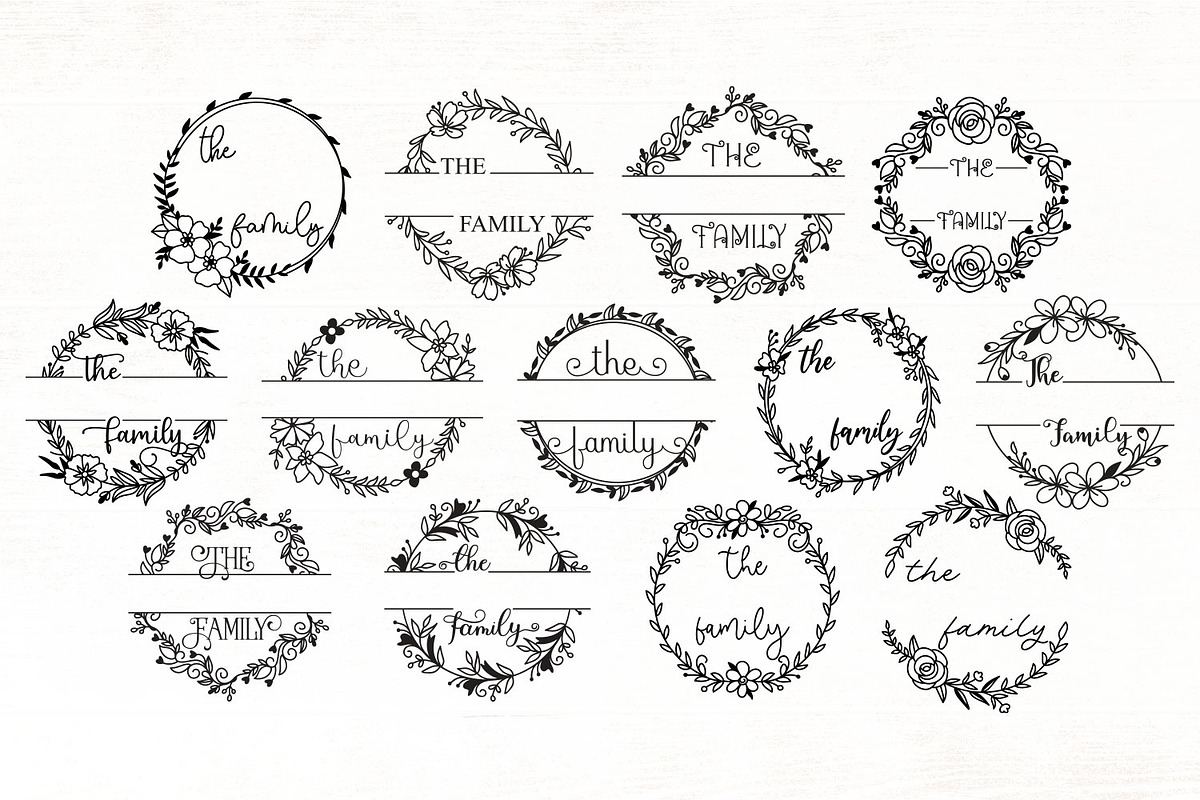 the
family
THE
FAMILY
THE
FAMILY
THE
FAMILY
the
family
the
family
the
family
the
family
The
Family
THE
FAMILY
the
family
the
family
the
family